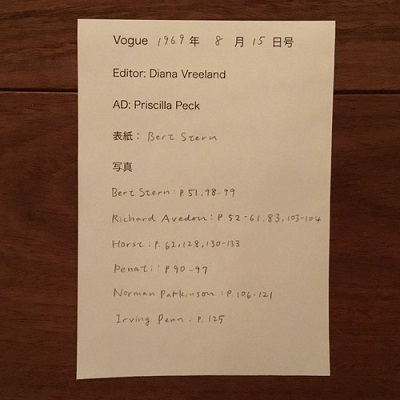 Vogue 1969年 8月15日号
Editor: Diana Vreeland
AD: Priscilla Peck
表紙: Bert Stern
写真
Bert Stern: P 51, 98-99
Richard Avedon: P 52-61, 83, 103-104
Horst: P. 62, 128, 130-133
Penati: P 90-97
Norman Parkinson: P. 106-121
Irving Penn: P. 125